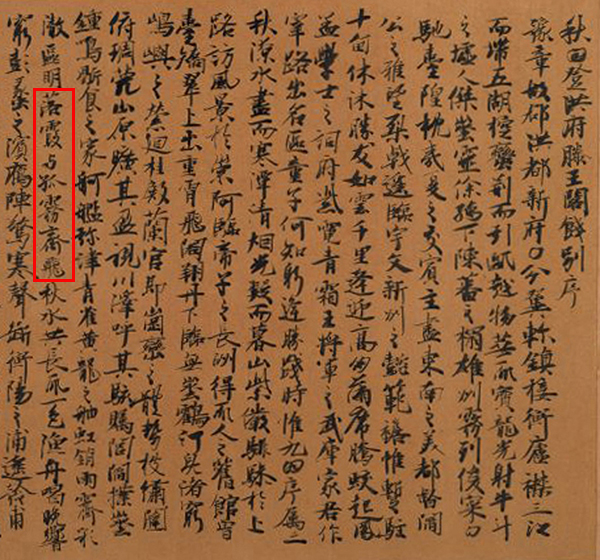 秋日登洪府滕王閣餞別序
豫章故郡洪都新府〇分翼軫埊接衡廬襟三江
而帶五湖控蠻荊而引甌越物華天寶龍光射牛斗
之墟人傑埊靈徐孺下陳蕃之榻雄州霧列俊寀〇
馳臺隍枕夷夏之交賓主盡東南之美都督閻
公之雅望棨戟遥臨宇文新州之懿範襜帷暫駐
十旬休沐勝友如雲千里逢迎高朋滿席騰蛟起鳳
孟學士之詞府紫電青霜王將軍之武庫家君作
宰路出名區童子何知躬逢勝餞時惟九月序属三
秋潦水盡而寒潭清烟光凝而暮山紫儼驂騑於上
路訪風景於崇阿臨帝子之長洲得仙人之舊館層
臺聳翠上出重霄飛閣翔丹下臨無埊鶴汀鳧渚窮
島嶼之縈迴桂殿蘭宮即崗巒之體勢披繡闥
俯彫甍山原曠其盈視川澤盱其駭矚閭閻撲埊
鍾鳴鼎食之家舸艦弥津青雀黄龍之舳虹銷雨霽彩
徹區明落霞与孤霧齊飛秋水共長天一色漁舟唱晚響
窮彭蠡之濱鴈陣驚寒聲斷衡陽之浦遥衿甫